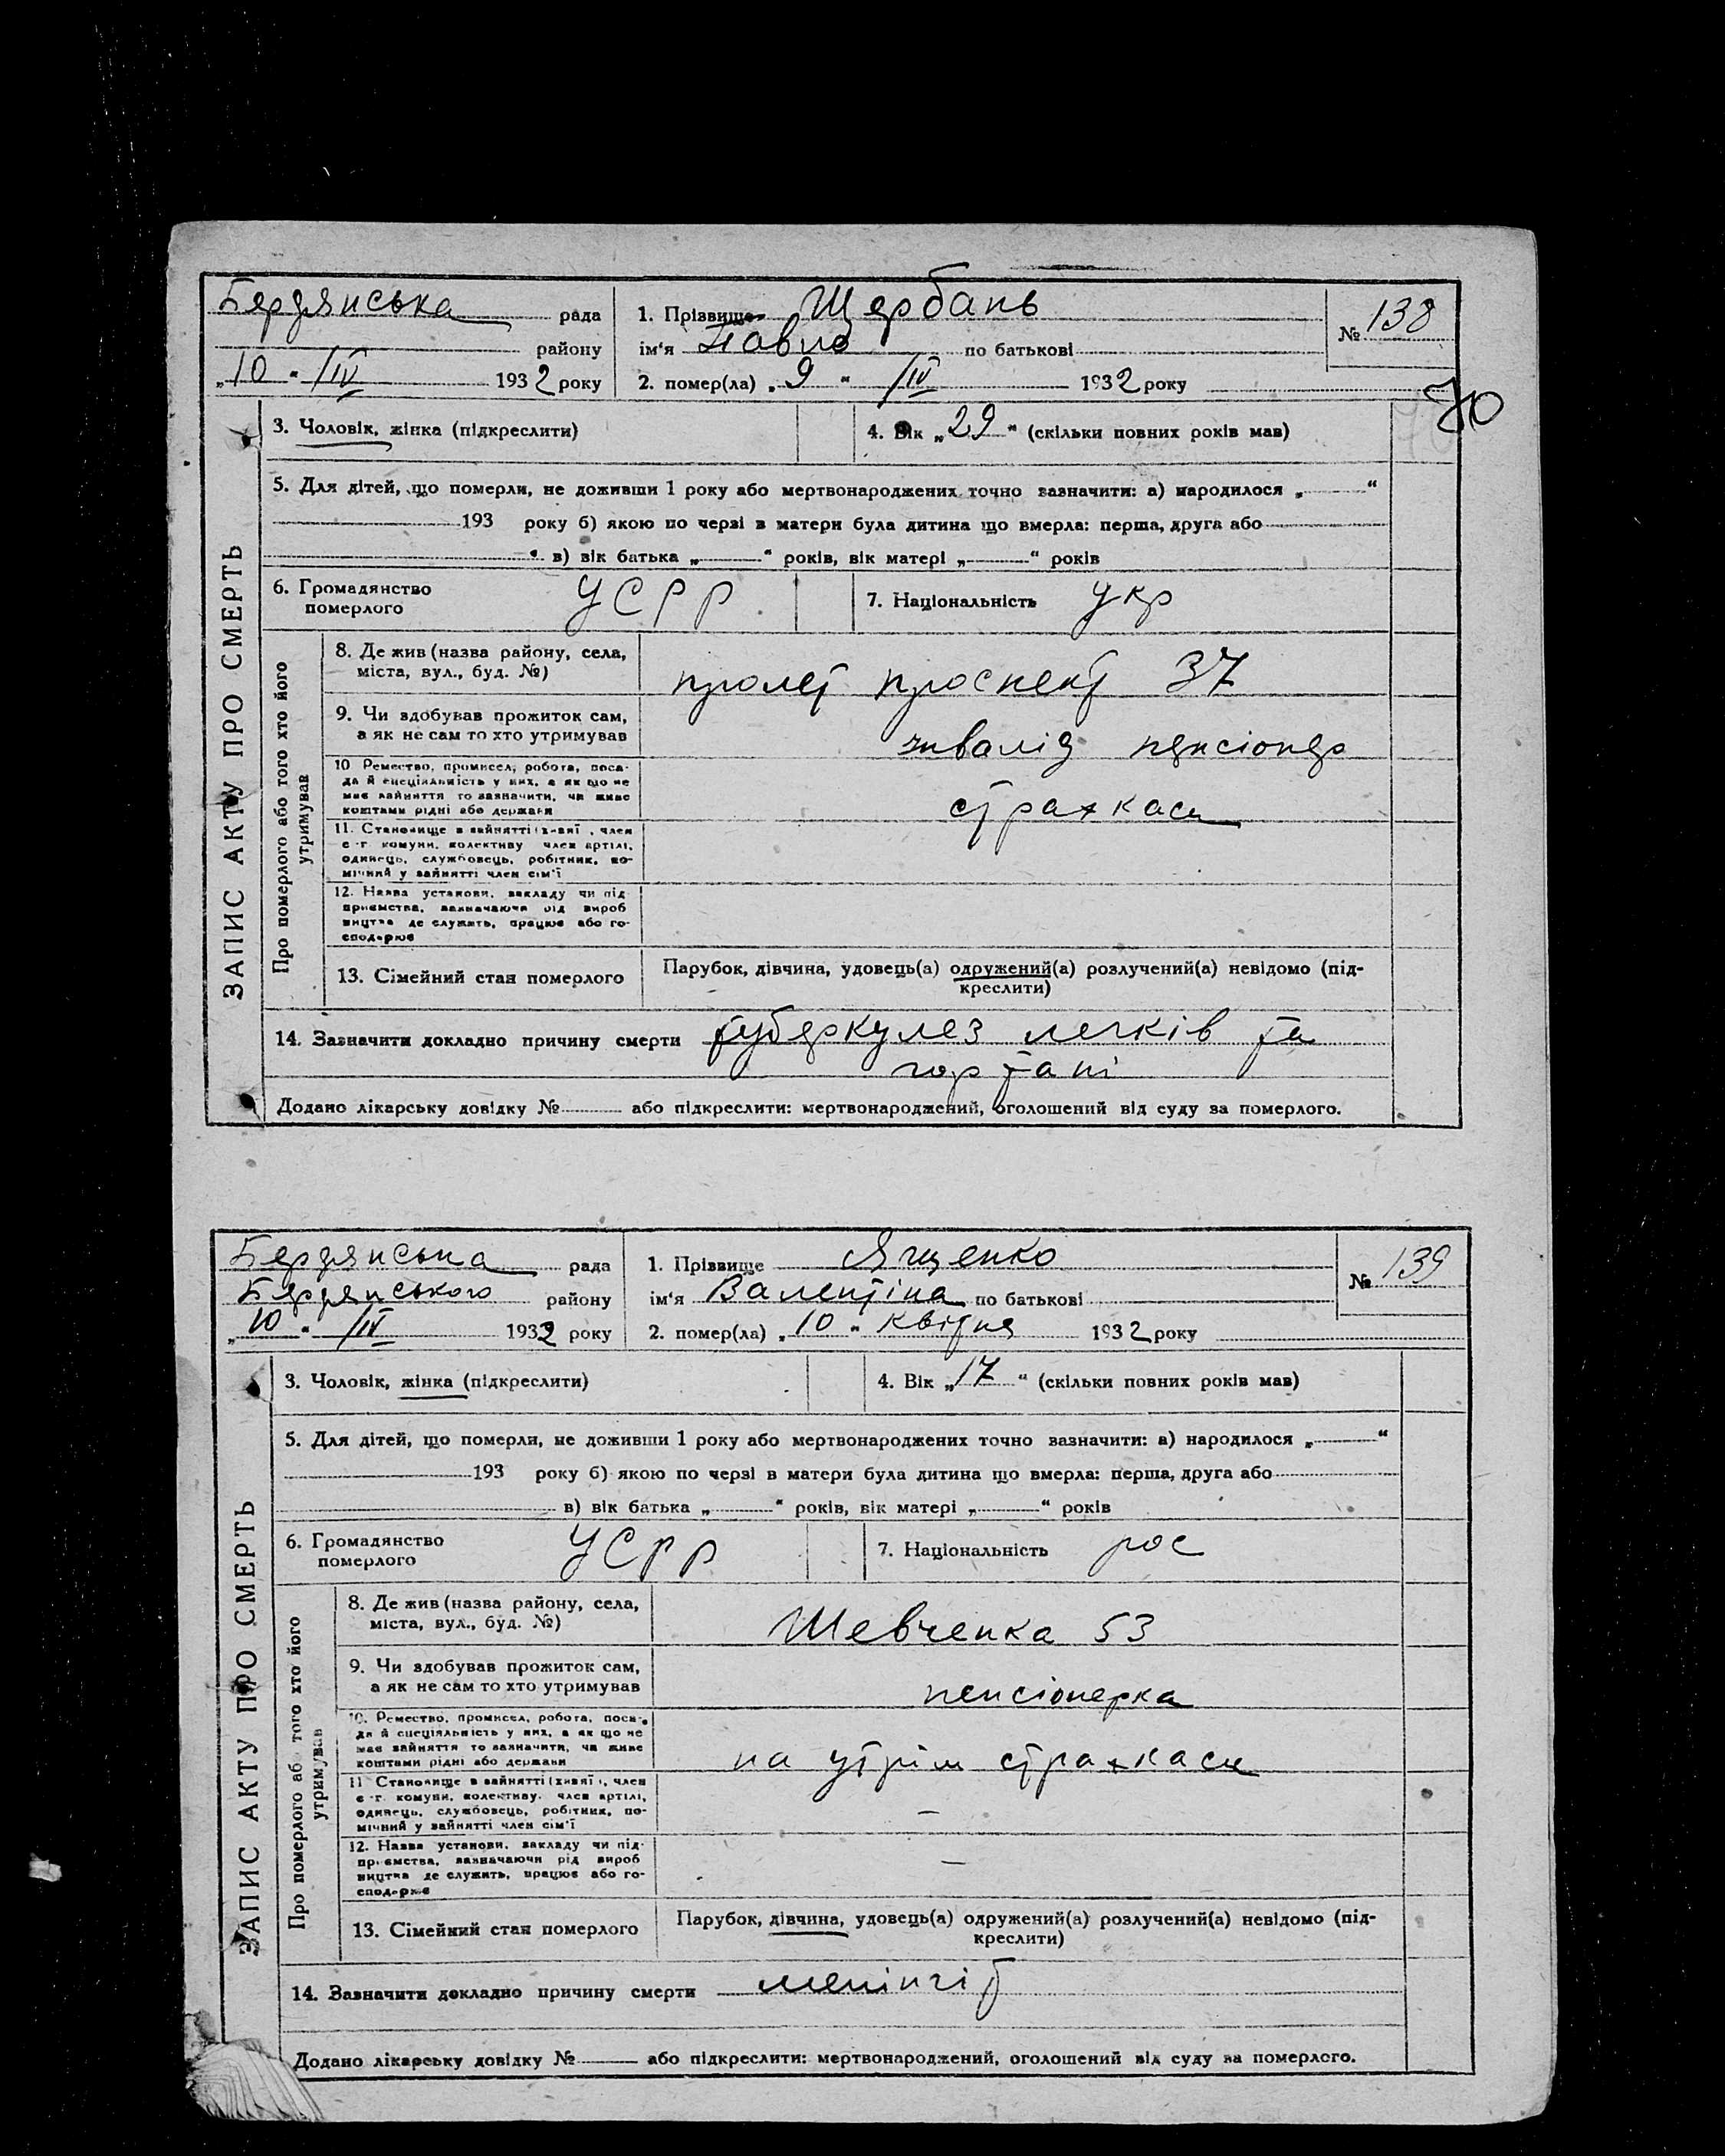 Бердянська рада 1. Прізвище Щербань № 138
району ім'я Павло по батькові
„10“ /IV 1932 року 2. помер(ла) „9“ /IV 1932 року
70
3. Чоловік, жінка (підкреслити) 4. Вік „29“ (скільки повних років мав)
5. Для дітей, що померли, не доживши 1 року або мертвонароджених точно зазначити: а) народилося „ “
193 року б) якою по черзі в матери була дитина що вмерла: перша, друга або
в) вік батька „ “ років, вік матері „ “ років
6. Громадянство померлого УСРР 7. Національність укр
ЗАПИС АКТУ ПРО СМЕРТЬ
Про померлого або того хто його утримував
8. Де жив (назва району, села, міста, вул., буд. №) пролет проспект 37
9. Чи здобував прожиток сам, а як не сам то хто утримував інвалід пенсіонер
10 Ремество, промисел, робота, поса-
да й спеціяльність у них, а як що не
має зайняття то зазначити, чи живе
коштами рідні або держави страхкаси
11. Становище в зайнятті (хазяї, член
с-г комуни, колективу член артілі,
одинець, службовець, робітник, по-
мічний у зайнятті член сім'ї
12. Назва установи, закладу чи під-
приємства, зазначаючи рід вироб
ництва де служить, працює або го-
сподарює
13. Сімейний стан померлого Парубок, дівчина, удовець(а) одружений(а) розлучений(а) невідомо (під-
креслити)
14. Зазначити докладно причину смерти туберкулез легків та
гортані
Додано лікарську довідку № або підкреслити: мертвонароджений, оголошений від суду за померлого.
Бердянська рада 1. Прізвище Ященко № 139
Бердянського району ім'я Валентіна по батькові
„10“ /IV 1932 року 2. помер(ла) „10“ квітня 1932 року
3. Чоловік, жінка (підкреслити) 4. Вік „17“ (скільки повних років мав)
5. Для дітей, що померли, не доживши 1 року або мертвонароджених точно зазначити: а) народилося „ “
193 року б) якою по черзі в матери була дитина що вмерла: перша, друга або
в) вік батька „ “ років, вік матері „ “ років
6. Громадянство померлого УСРР 7. Національність рос
ЗАПИС АКТУ ПРО СМЕРТЬ
Про померлого або того хто його утримував
8. Де жив (назва району, села, міста, вул., буд. №) Шевченка 53
9. Чи здобував прожиток сам, а як не сам то хто утримував пенсіонерка
10. Ремество, промисел, робота, поса-
да й спеціяльність у них, а як що не
має зайняття то зазначити, чи живе
коштами рідні або держави на утрім страхкаси
11 Становище в зайнятті (хазяї, член
с-г комуни, колективу, член артілі,
одинець, службовець, робітник, по-
мічний у зайнятті член сім'ї –
12. Назва установи, закладу чи під-
приємства, зазначаючи рід вироб
ництва де служить, працює або го-
сподарює –
13. Сімейний стан померлого Парубок, дівчина, удовець(а) одружений(а) розлучений(а) невідомо (під-
креслити)
14. Зазначити докладно причину смерти менінгіт
Додано лікарську довідку № або підкреслити: мертвонароджений, оголошений від суду за померлого.